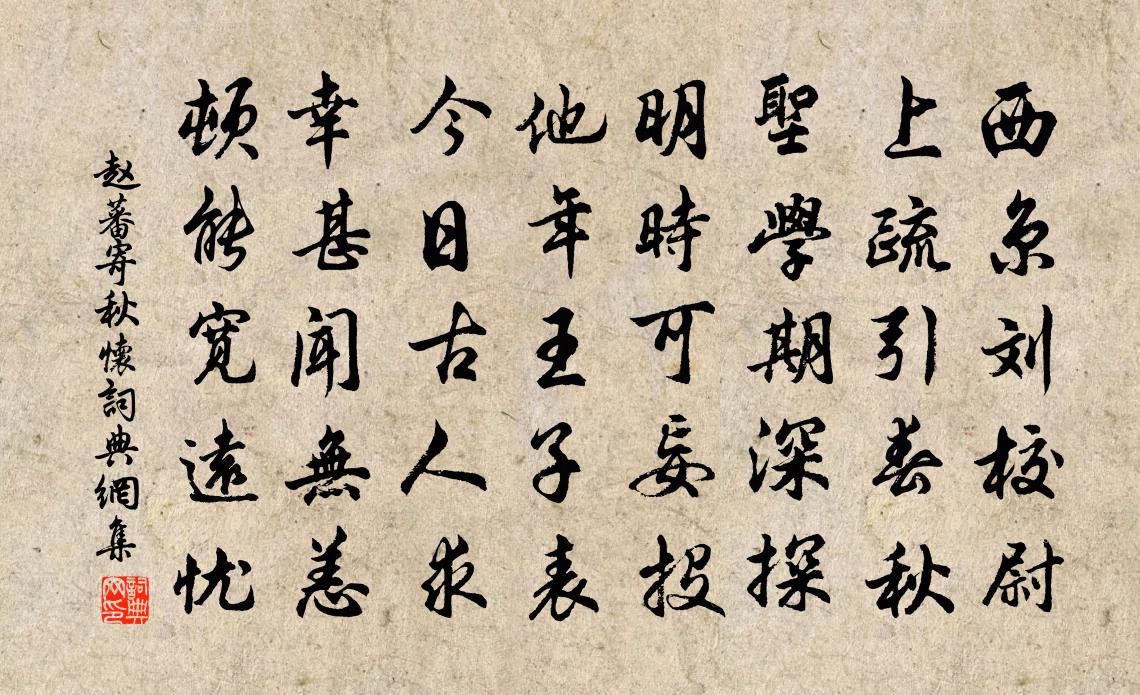 西京刘校尉
上疏引春秋
聖學期深探
明時可妄投
他年王子表
今日古人求
幸甚聞無恙
頓能寬遠忧
赵蕃寄秋懷詞典網集
詞典网印